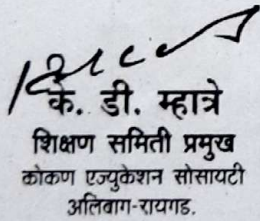 के. डी. म्हात्रे
शिक्षण समिती प्रमुख
कोकण एज्युकेशन सोसायटी
अलिबाग-रायगड.